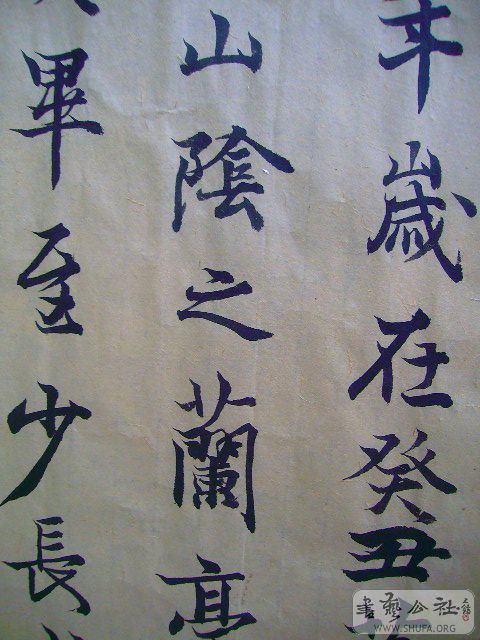 年歲在癸丑
山陰之蘭亭
畢至少長
書藝公社
WWW.SHUFA.ORG